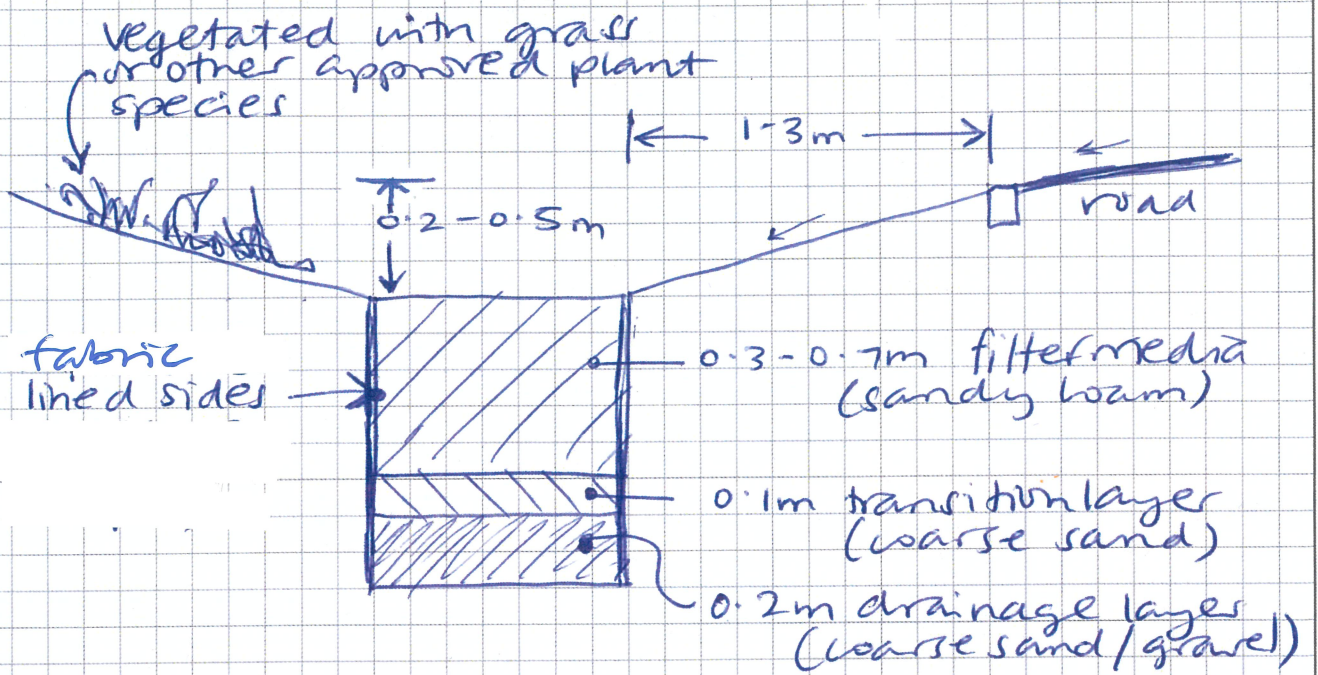 vegetated with grass
or other approved plant
species
1-3m
road
0.2-0.5m
fabric
lined sides
0.3-0.7m filter media
(sandy loam)
0.1m transition layer
(coarse sand)
0.2m drainage layer
(coarse sand/gravel)